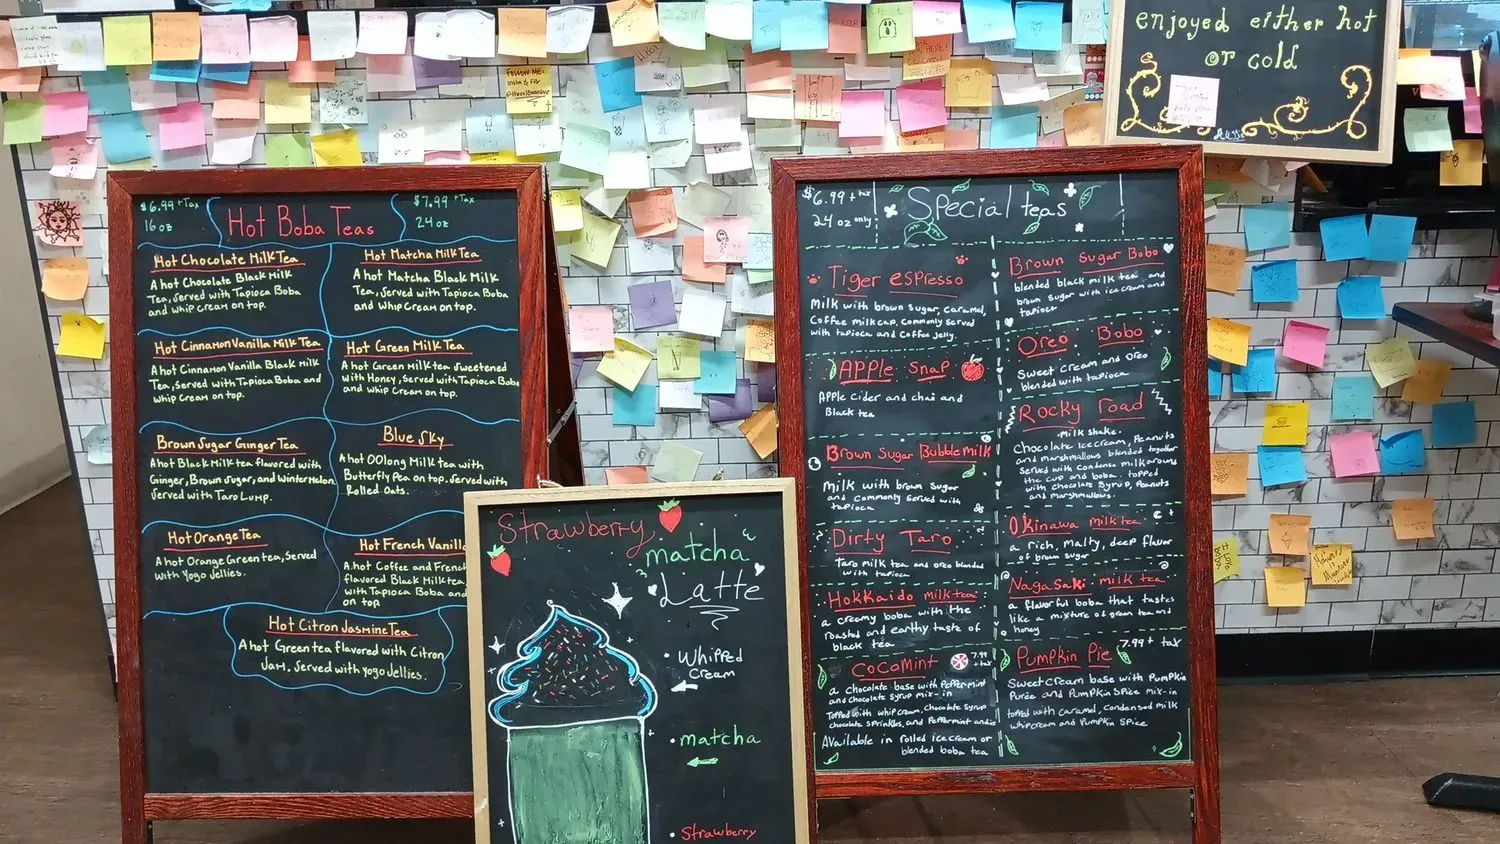 enjoyed either hot
or cold
FOLLOW ME:
$6.99 +Tax
16 oz
Hot Boba Teas
$7.99 +Tax
24 oz
Hot Chocolate Milk Tea
A hot Chocolate Black Milk
Tea, Served with Tapioca Boba
and whip cream on top.
Hot Matcha Milk Tea
A hot Matcha Black Milk
Tea, Served with Tapioca Boba
and Whip Cream on top.
Hot Cinnamon Vanilla Milk Tea
A hot Cinnamon Vanilla Black Milk
Tea, Served with Tapioca Boba and
whip cream on top.
Hot Green Milk Tea
A hot Green Milk tea sweetened
with Honey, Served with Tapioca Boba
and whip cream on top.
Brown Sugar Ginger Tea
A hot Black Milk tea flavored with
Ginger, Brown Sugar, and Wintermelon
Served with Taro Lump.
Blue Sky
A hot OOlong Milk tea with
Butterfly Pea on top. Served with
Rolled Oats.
Hot Orange Tea
A hot Orange Green tea, Served
with Yogo Jellies.
Hot French Vanilla
A hot Coffee and French
flavored Black Milk tea
with Tapioca Boba and
on top
Hot Citron Jasmine Tea
A hot Green tea flavored with Citron
Jam. Served with yogo Jellies.
Strawberry
matcha
Latte
• Whipped
Cream
• matcha
• Strawberry
$6.99 + tax
24 oz only
Special teas
Tiger espresso
Milk with brown sugar, caramel,
Coffee milk cap, commonly served
with tapioca and coffee jelly.
Apple Snap
Apple cider and chai and
Black tea
Brown Sugar Bubble milk
Milk with brown sugar
and commonly served with
tapioca
Dirty Taro
Taro milk tea and Oreo blended
with tapioca
Hokkaido milk tea
a creamy boba with the
roasted and earthy taste of
black tea
Cocomint
7.99
+ tax
a chocolate base with Peppermint
and chocolate syrup mix-in
Topped with whip cream, chocolate syrup
chocolate sprinkles, and Peppermint
Available in rolled ice cream or
blended boba tea
Brown Sugar Bobo
blended black milk tea and
brown sugar with ice cream and
tapioca
Oreo Bobo
Sweet cream and Oreo
blended with tapioca
Rocky road
•Milk shake•
Chocolate Ice cream, Peanuts
and marshmallows blended together
Served with condense milk around
the cup and boba. topped
with chocolate Syrup, Peanuts
and marshmallows.
Okinawa milk tea
a rich, malty, deep flavor
of brown sugar
Nagasaki milk tea
a flavorful boba that tastes
like a mixture of green tea and
honey
Pumpkin Pie
7.99 + tax
Sweet cream base with Pumpkin
Puree and Pumpkin Spice mix-in
topped with caramel, condensed milk
whipcream and Pumpkin Spice